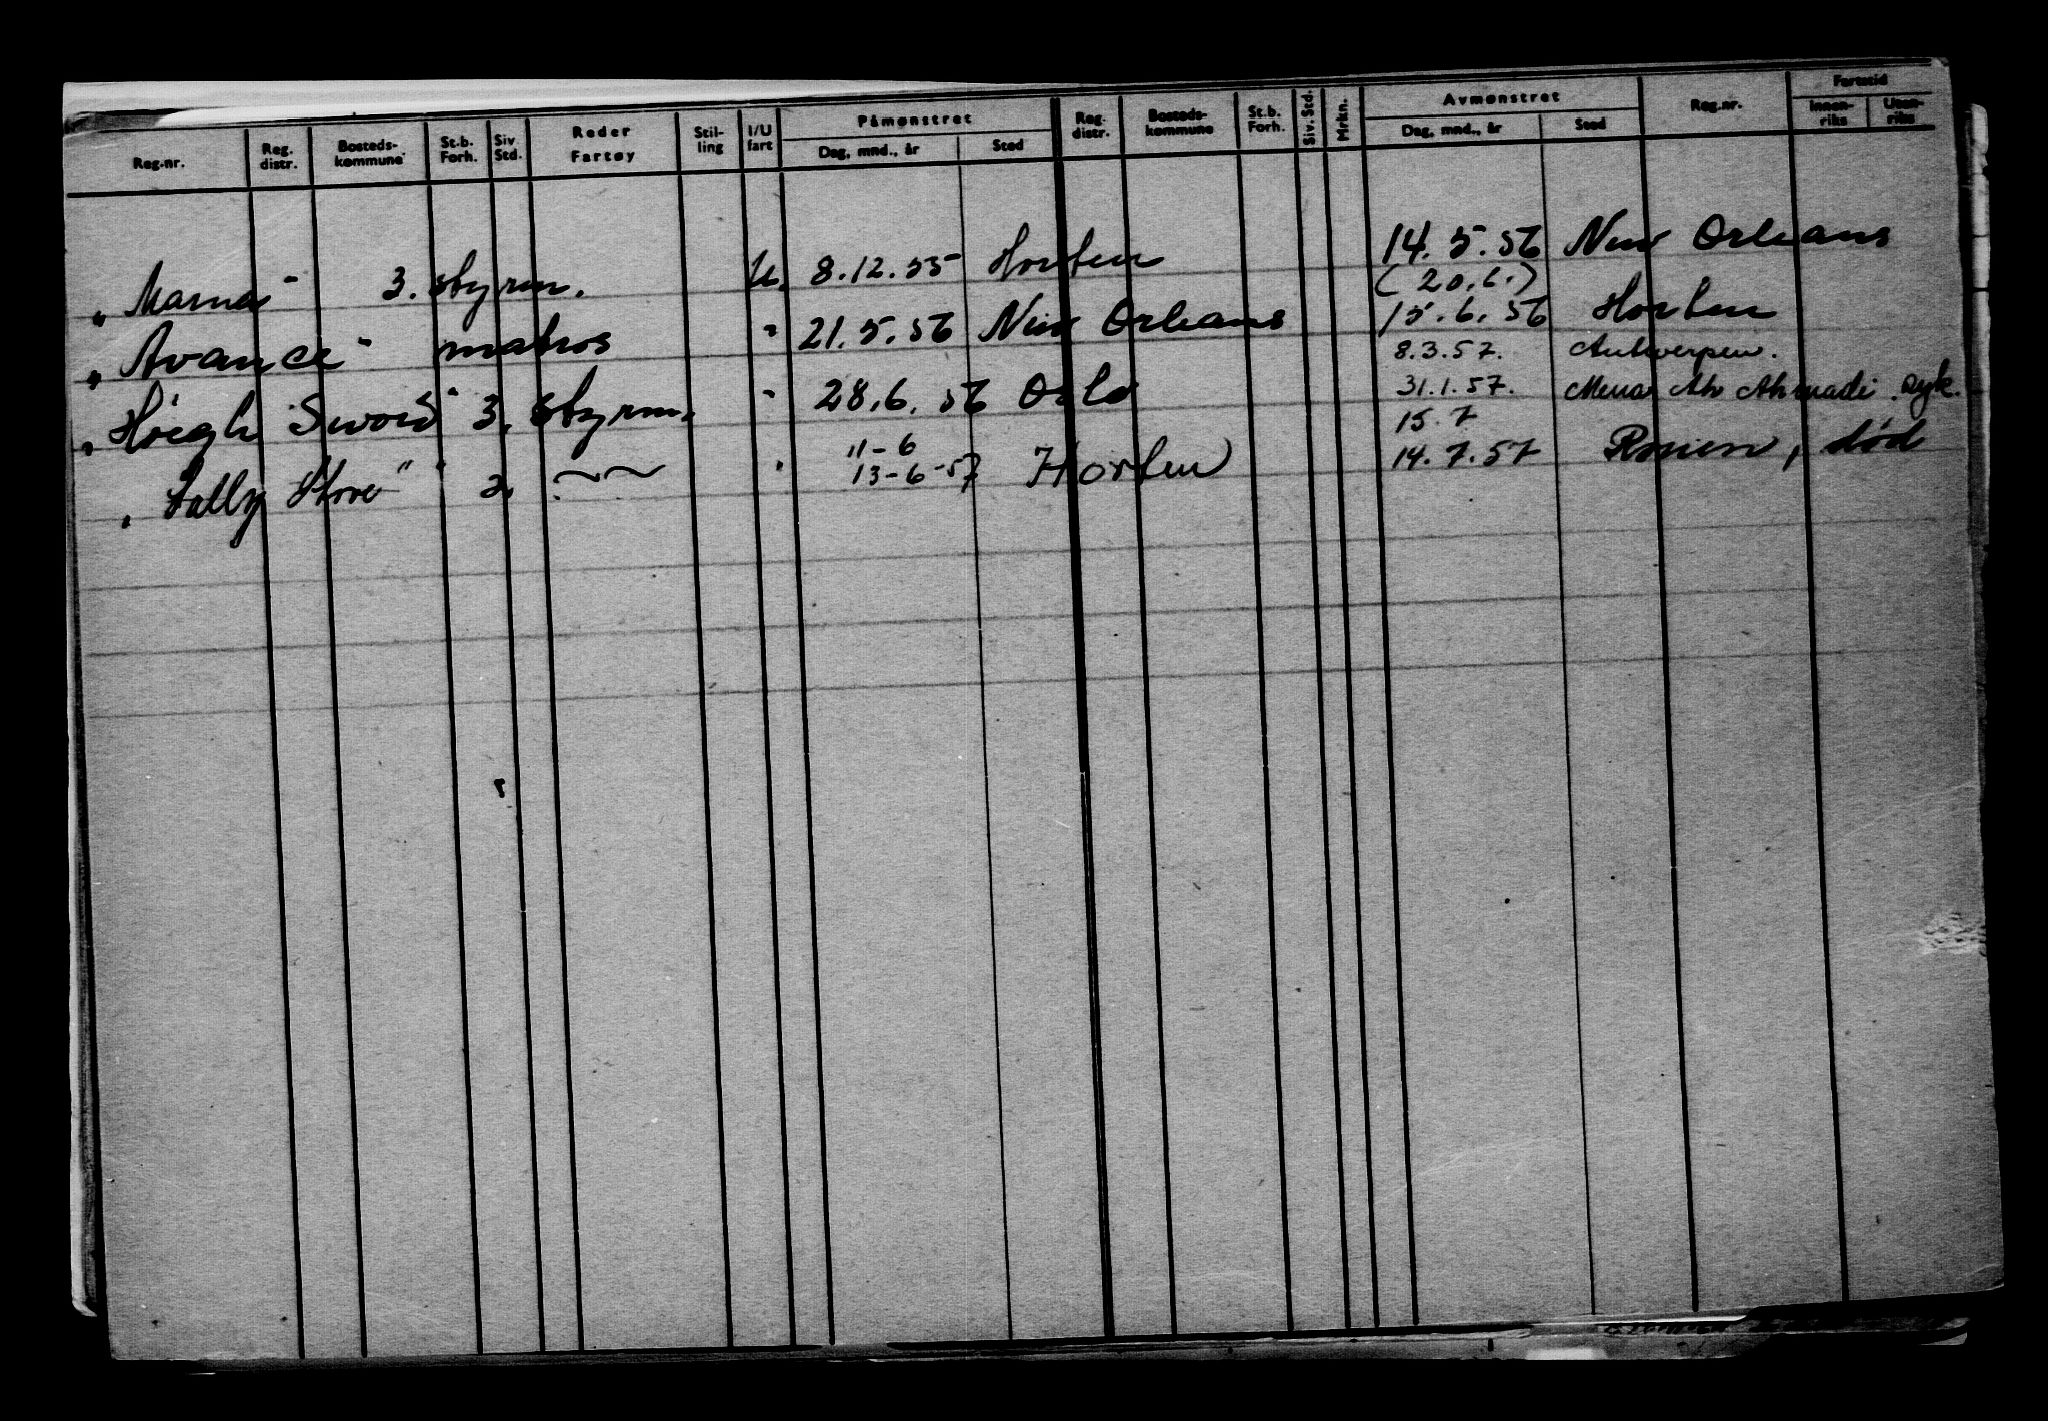 Reg.nr. Reg. distr. Bosteds-kommune St.b. Forh. Siv Std. Reder Fartøy Stil-ling I/U fart Påmønstret Dag, mnd., år Sted Reg. distr. Bosteds-kommune St.b. Forh. Siv. Std. Mrkn. Avmønstret Dag, mnd., år Sted Reg.nr. Fartstid Innen-riks Uten-riks
„Marna" 3. styrm. U. 8.12.55 Horten 14.5.56 New Orleans
(20.6.)
„Avance" matros " 21.5.56 New Orleans 15.6.56 Horten
8.3.57. Antwerpen.
„Höegh Sword" 3. styrm. " 28.6.56 Oslo 31.1.57. Mena Ah Ahmadi. syk.
11-6 15.7
„Sally Stove" 2. " 13-6-57 Horten 14.7.57 Rouen, død